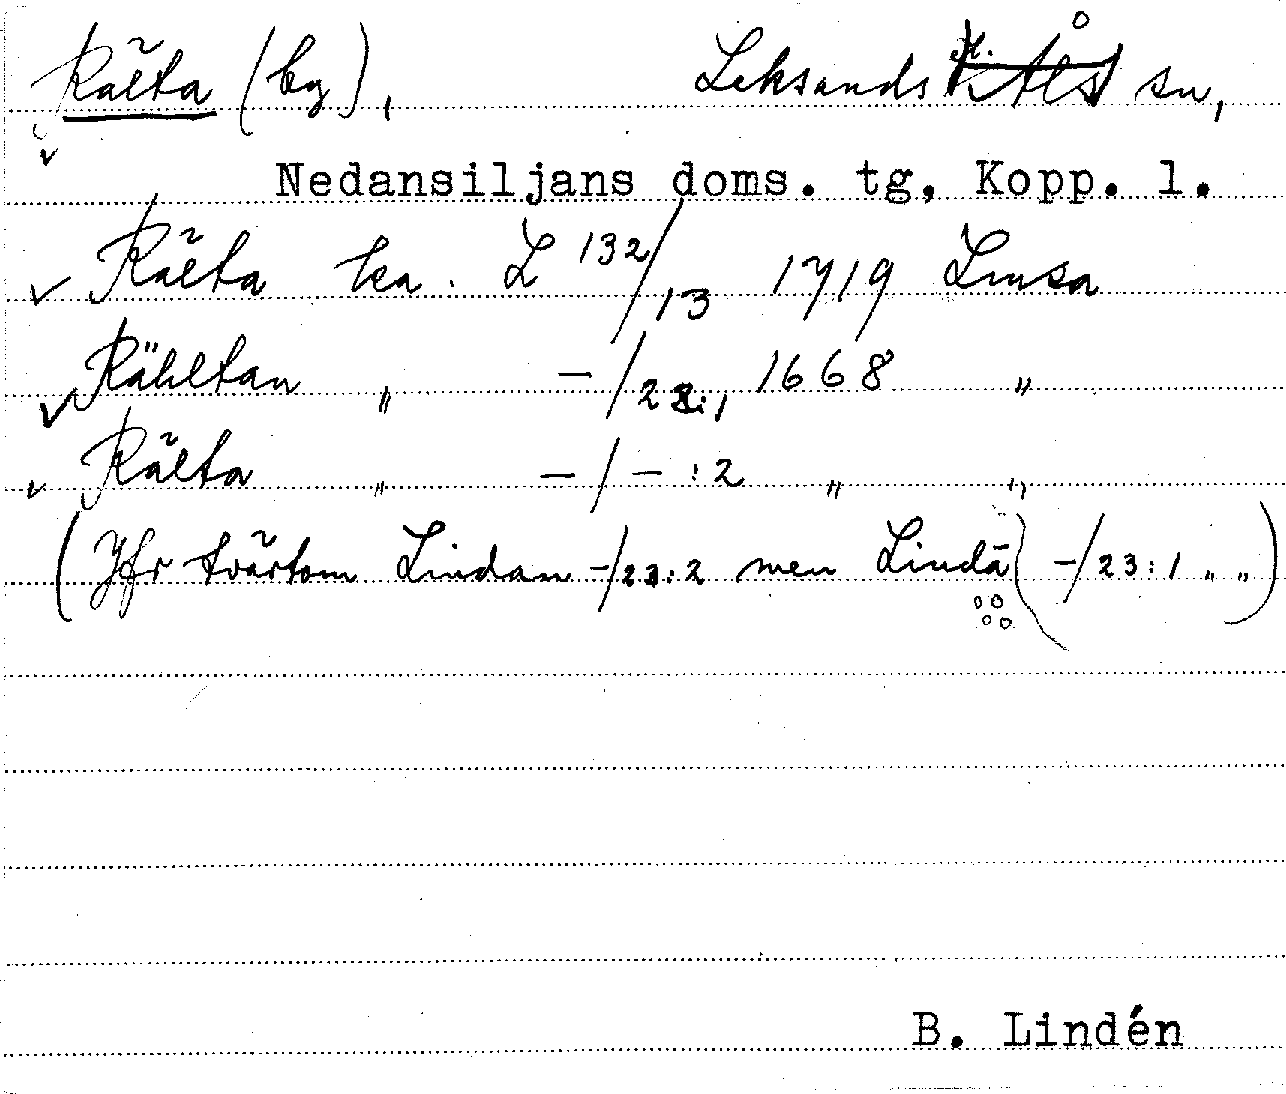 Rälta (by), Leksands sn,
Nedansiljans doms. tg, Kopp. l.
Rälta ka. L 132/13 1719 Lmsa
Rähltan „ -/22:1 1668 „
Rälta „ -/- :2 „ „
(Jfr tvärtom Lindan -/23:2 men Lindä -/23:1 „ „)
B. Lindén